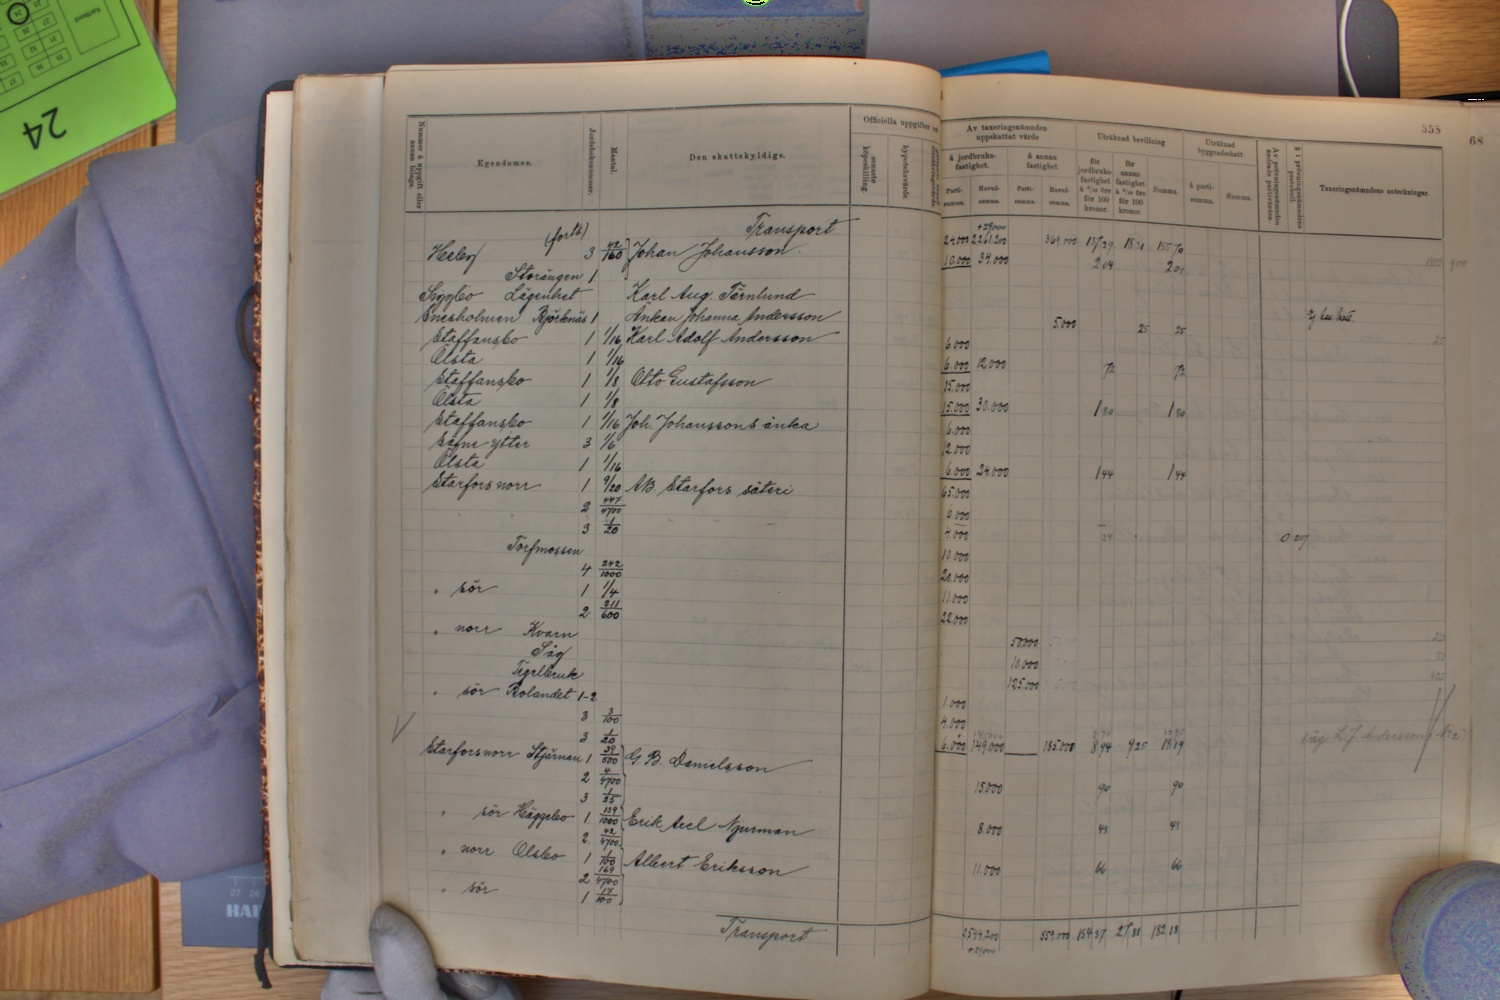 24
555
68
Nummer å uppgift eller annan bilaga.
Egendomen.
Jordeboksnummer.
Mantal.
Den skattskyldige.
Officiella uppgifter om
senaste köpeskilling
hypoteksvärde
Av taxeringsnämnden uppskattat värde
å jordbruksfastighet.
å annan fastighet.
Partisumma.
Huvudsumma.
Partisumma.
Huvudsumma.
Uträknad bevillning
för jordbruksfastighet
för 100 kronor.
för annan fastighet
för 100 kronor.
Summa.
Uträknad byggnadsskatt
å partisumma.
Summa.
Av prövningsnämnden ändrade partivärden
Taxeringsnämndens anteckningar.
Transport 24.000 2.261.200 +29000 369.000 137 39 18 31 155 70
(forts)
Heleby 3 42/160 Johan Johansson 10.000 34.000 2 04 2 04
Storängen 1
Siggbo Lägenhet Karl Aug. Tärnlund
Enesholmen Björknäs 1 Änkan Johanna Andersson 5.000 25 25
Staffansbo 1 1/16 Karl Adolf Andersson 6.000
Ölsta 1 1/16 6.000 12.000 72 72
Staffansbo 1 1/8 Otto Gustafsson 15.000
Ölsta 1 1/8 15.000 30.000 1 80 1 80
Staffansbo 1 1/16 Joh. Johanssons änka 6.000
Säfne ytter 3 1/6 12.000
Ölsta 1 1/16 6.000 24.000 1 44 1 44
Starfors norr 1 9/20 AB. Starfors säteri 65.000
2 447/4700 6.000
3 1/20 4.000 24
Torfmossen 10.000
4 242/1000 20.000
" sör 1 1/4 11.000
2 211/600 22.000
" norr Kvarn 50.000
Såg 10.000
Tegelbruk 125.000
" sör Rolandet 1-2 1.000
3 3/100 4.000
3 1/20 6.000 149.000 185.000 8 94 9 25 18 19
Starfors norr Stjärnan 1 39/500 G. B. Danielsson
2 4/4700 15.000 90 90
3 1/25
" sör Häggebo 1 139/1000 Erik Axel Njurman 8.000 48 48
2 42/4700
" norr Olsbo 1 1/100 Albert Eriksson 11.000 66 66
2 169/4700
" sör 1 17/100
Transport 2544.200 559.000 154 37 27 81 182 18
+29000